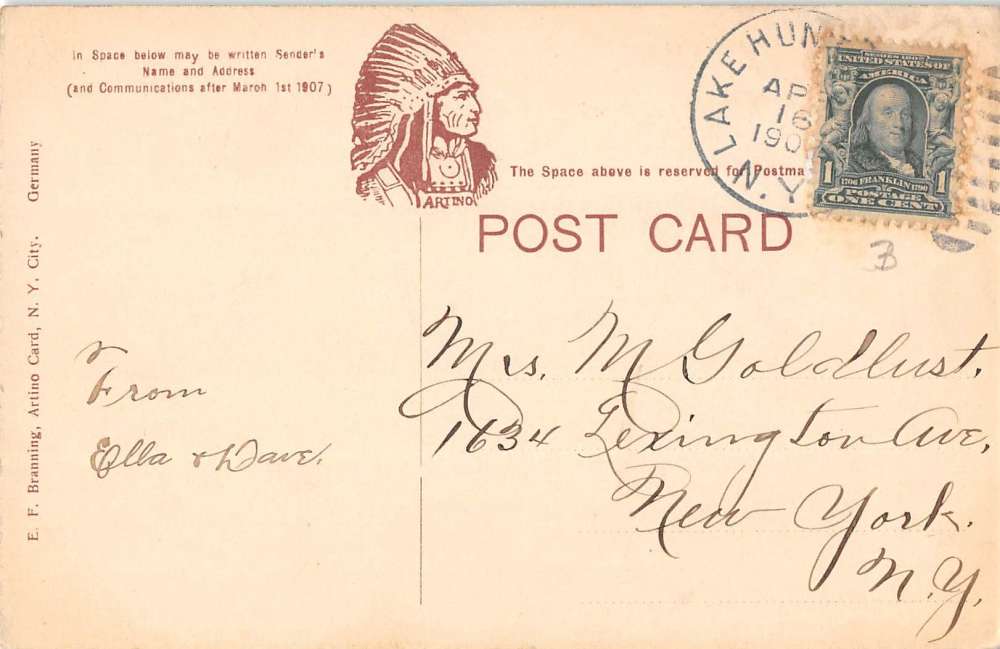 In Space below may be written Sender's
Name and Address
(and Communications after March 1st 1907)
ARTINO
The Space above is reserved for Postma
POST CARD
LAKE HUN
AP
16
190
N.Y.
SERIES 1902
UNITED STATES OF
AMERICA
1 1
1706 FRANKLIN 1790
POSTAGE
ONE CENT
B
From
Ella & Dave.
Mrs. M Goldlust.
1634 Lexington Ave,
New York.
N.Y.
E. F. Branning, Artino Card, N. Y. City. Germany